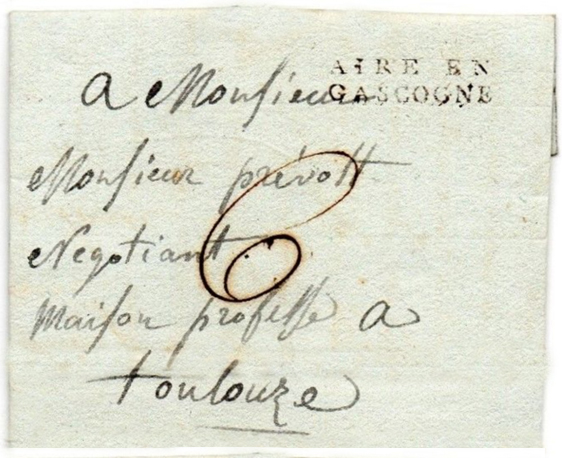 AIRE EN
GASCOGNE
a Monsieur
Monsieur prévost
Negotiant
6
maison professe a
toulouze